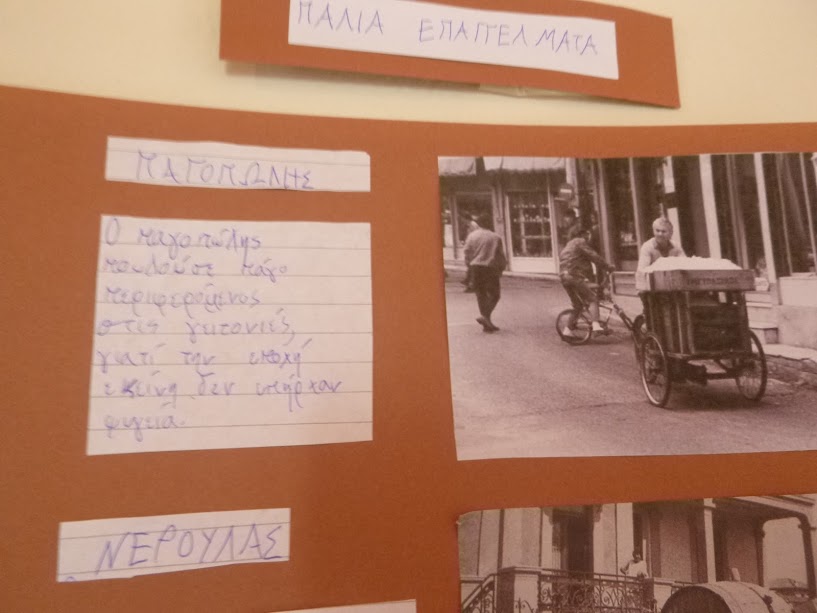 ΠΑΛΙΑ ΕΠΑΓΓΕΛΜΑΤΑ
ΠΑΓΟΠΩΛΗΣ
Ο παγοπώλης
πουλούσε πάγο
περιφερόμενος
στις γειτονιές,
γιατί την εποχή
εκείνη δεν υπήρχαν
ψυγειά.
ΝΕΡΟΥΛΑΣ